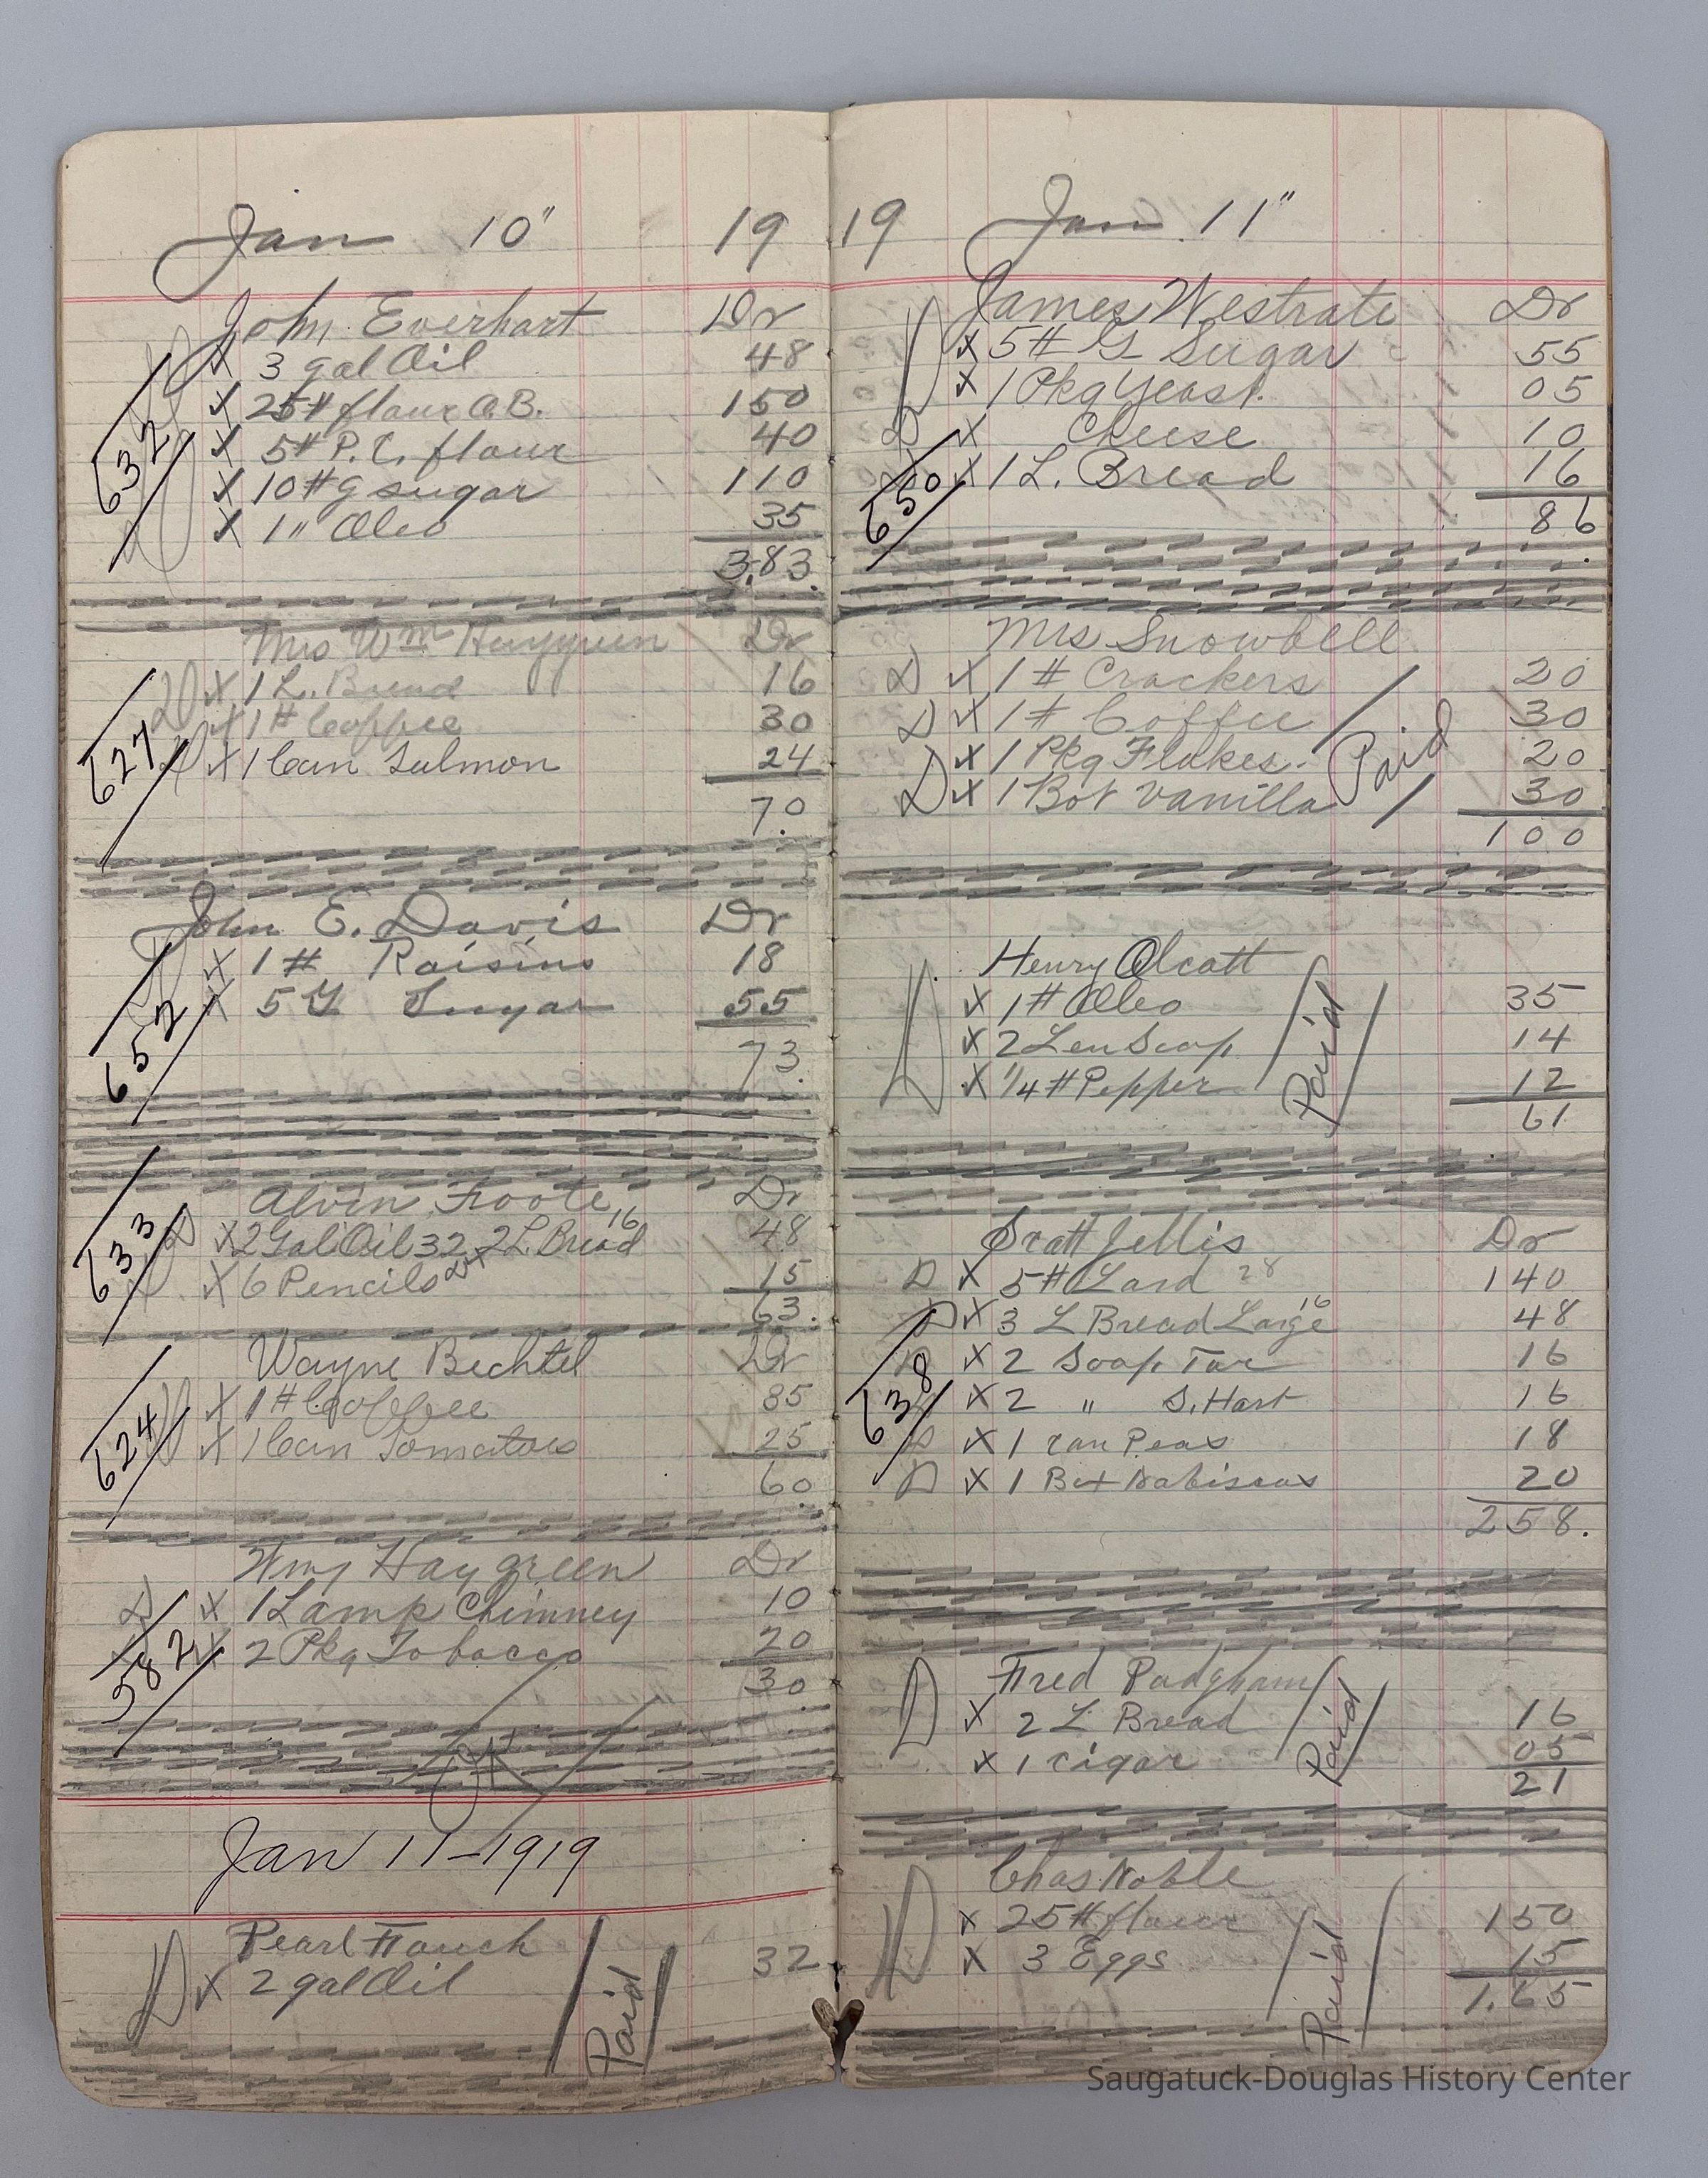 Jan 10" 19
John Everhart Dr
632
X 3 gal Oil 48
X 25# flour A.B. 150
X 5# P.C. flour 40
X 10# g sugar 110
X 1 " Oleo 35
3.83
Mrs Wm Haygreen Dr
627
D X 1 L. Bread 16
X 1# Coffee 30
D X 1 Can Salmon 24
70
John E. Davis Dr
652
X 1# Raisins 18
X 5 G Sugar 55
73
Alvin Foote Dr
633
D X 2 Gal Oil 32 2 L. Bread 16 48
X 6 Pencils 15
63.
Wayne Bechtel Dr
624
X 1# Coffee 35
X 1 Can Tomatoes 25
60
Wm Haygreen Dr
582
D X 1 Lamp Chimney 10
X 2 Pkg Tobacco 20
30
OK
Jan 11-1919
Pearl Fouch
D X 2 gal Oil 32
Paid
19 Jan 11"
James Westrate Dr
650
X 5# G Sugar 55
X 1 Pkg Yeast. 05
D X Cheese 10
X 1 L. Bread 16
86
Mrs Snowbell
D X 1 # Crackers 20
D X 1 # Coffee 30
X 1 Pkg Flakes. 20
D X 1 Bot Vanilla 30
Paid
100
Henry Olcott
D X 1# Oleo 35
X 2 Len Soap 14
X 1/4 # Pepper 12
Paid
61
Sratt Jellis Dr
638
D X 5# Lard 28 140
D X 3 L Bread Large 16 48
X 2 Soap Tar 16
X 2 " S. Hart 16
D X 1 can Peas 18
D X 1 Box Nabiscos 20
258.
Fred Padgham
D X 2 L Bread 16
X 1 cigar 05
Paid
21
Chas Noble
D X 25# flour 150
X 3 Eggs 15
Paid
1.65
Saugatuck-Douglas History Center